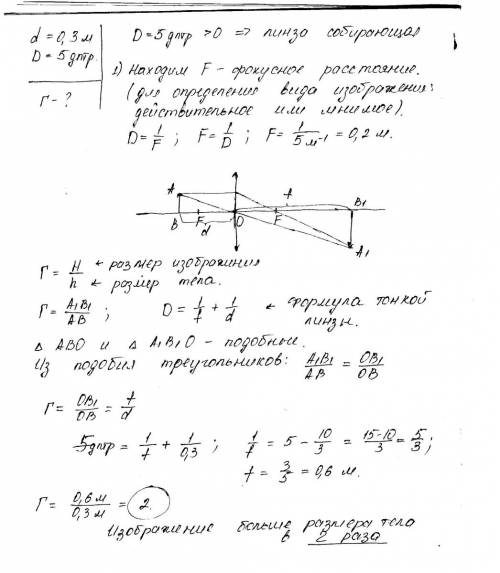 d = 0,3 м
D = 5 дптр.
Г - ?
D = 5 дптр > 0 => линза собирающая
1) Находим F - фокусное расстояние.
(для определения вида изображения:
действительное или мнимое).
D = 1/F ; F = 1/D ; F = 1/5м⁻¹ = 0,2 м.
A f B₁
B F d O F A₁
Г = H/h ← размер изображения
← размер тела.
Г = A₁B₁/AB ; D = 1/f + 1/d ← формула тонкой
линзы.
Δ ABO и Δ A₁B₁O - подобные.
Из подобия треугольников: A₁B₁/AB = OB₁/OB
Г = OB₁/OB = f/d
5дптр = 1/f + 1/0,3 ; 1/f = 5 - 10/3 = 15-10/3 = 5/3 ;
f = 3/5 = 0,6 м.
Г = 0,6 м/0,3 м = 2.
Изображение больше размера тела
в 2 раза